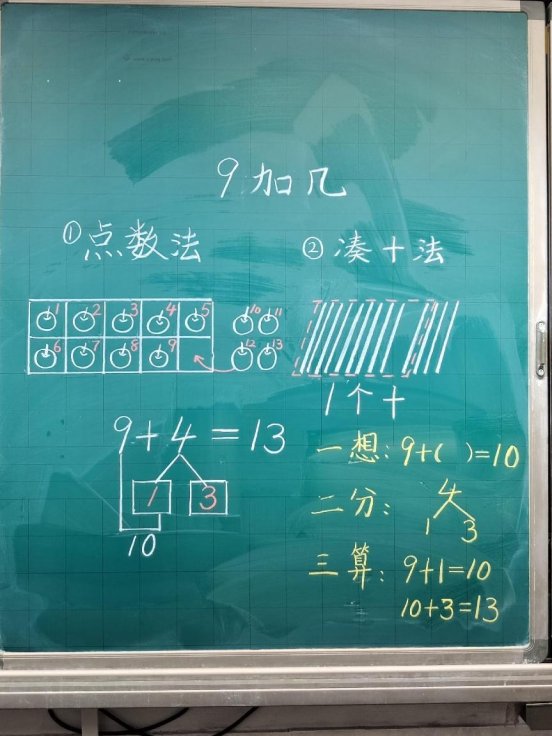 9加几
①点数法
②凑十法
1 2 3 4 5 10 11
6 7 8 9 12 13
1个十
9+4=13
1 3
10
一想：9+( )=10
二分：4
1 3
三算：9+1=10
10+3=13